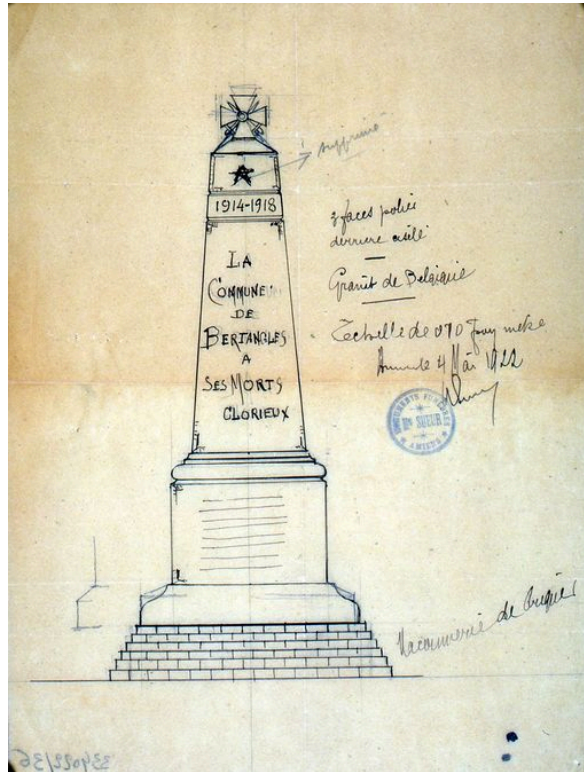 supprimé
1914-1918
LA
COMMUNE
DE
BERTANGLES
A
SES MORTS
GLORIEUX
3 faces polies
derrière ciselé
Granit de Belgique
Echelle de 0,10 pour mètre
Amiens le 4 Mai 1922
MONUMENTS FUNÈBRES
SUEUR
AMIENS
Maçonnerie de briques